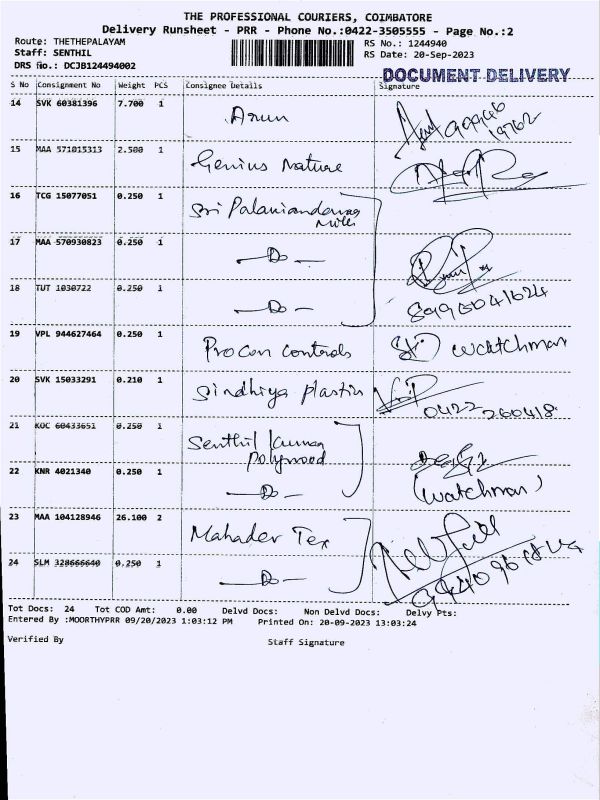 THE PROFESSIONAL COURIERS, COIMBATORE
Delivery Runsheet - PRR - Phone No.:0422-3505555 - Page No.:2
Route: THETHEPALAYAM
RS No.: 1244940
Staff: SENTHIL
RS Date: 20-Sep-2023
DRS No.: DCJB124494002
DOCUMENT DELIVERY
S No Consignment No Weight PCS Consignee Details Signature
14 SVK 60381396 7.700 1 Arun
15 MAA 571015313 2.500 1 Genius Nature
16 TCG 15077051 0.250 1 Sri Palaniandavar Mills
17 MAA 570930823 0.250 1 — Do —
18 TUT 1030722 0.250 1 — Do —
19 VPL 944627464 0.250 1 Procon Controls watchman
20 SVK 15033291 0.210 1 Sindhiya Plastics
0422 260418
21 KOC 60433651 0.250 1 Senthil Kumar Polywood
22 KNR 4021340 0.250 1 — Do — (watchman)
23 MAA 104128946 26.100 2 Mahadev Tex
24 SLM 328666640 0.250 1 — Do —
Tot Docs: 24 Tot COD Amt: 0.00 Delvd Docs: Non Delvd Docs: Delvy Pts:
Entered By :MOORTHYPRR 09/20/2023 1:03:12 PM Printed On: 20-09-2023 13:03:24
Verified By Staff Signature